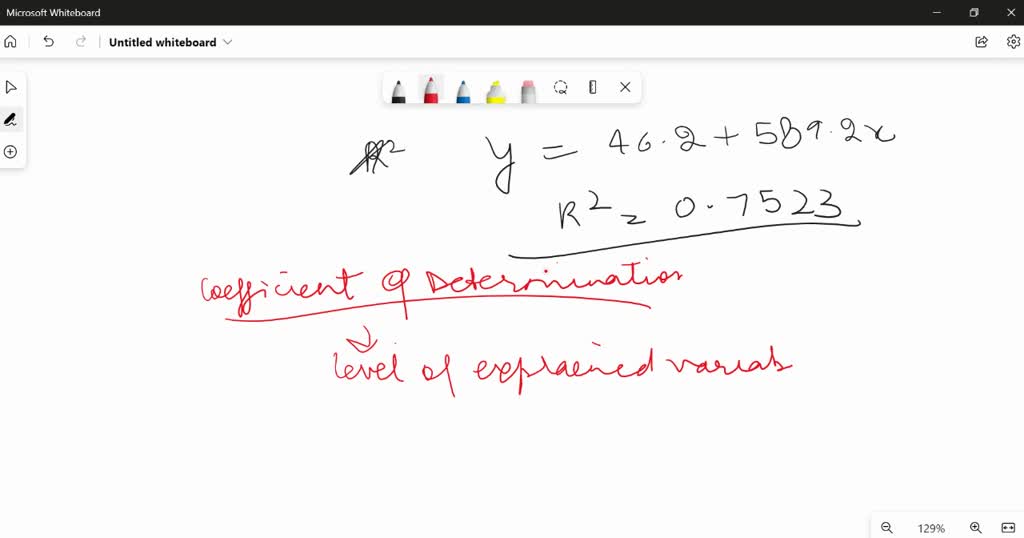 Microsoft Whiteboard
Untitled whiteboard
R² y = 46.2 + 589.2x
R² = 0.7523
Coefficient of Determination
level of explained variab
129%